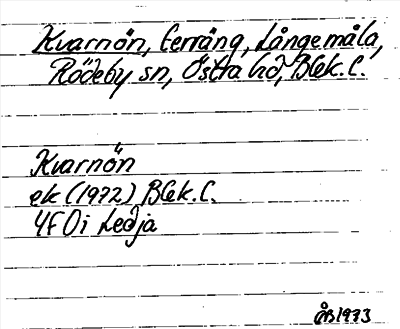 Kvarnön, terräng, Långemåla,
Rödeby sn, Östra hd, Blek. l.
Kvarnön
ek (1972) Blek. l.
4F 0i Ledja
ÅB 1973